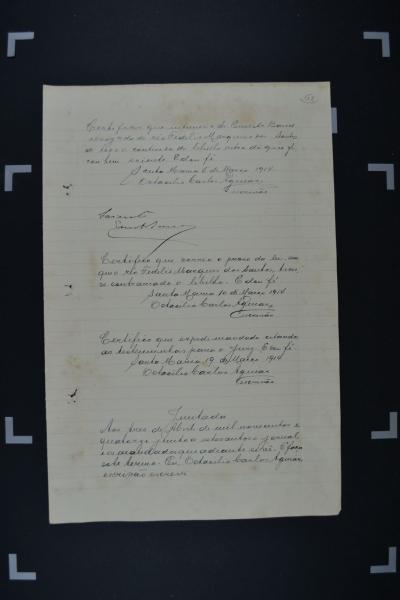 Certifico que intimei o dr. Ernesto Barros
advogado do réo Fidelis Marques dos Santos
de todo o contiudo do libello retro do que fi-
cou bem sciente. E dou fé
Santa Maria 6 de Março 1914
Octacilio Carlos Aguiar
Escrivão
Certifico que correu o praso da lei em
que o réo Fidelis Marques dos Santos,
se contrariado o libello. E dou fé
Santa Maria 10 de Março 1914
Octacilio Carlos Aguiar
Escrivão
Certifico que expedi mandado citando
as testemunhas para o jury. E dou fé
Santa Maria 19 de Março 1914
Octacilio Carlos Aguiar
Escrivão
Juntada
Aos tres de Abril de mil novecentos e
quatorze junto a estes autos o jornal
e o mandado que adiante se vê. E faço
este termo. Eu, Octacilio Carlos Aguiar,
escrivão escrevi